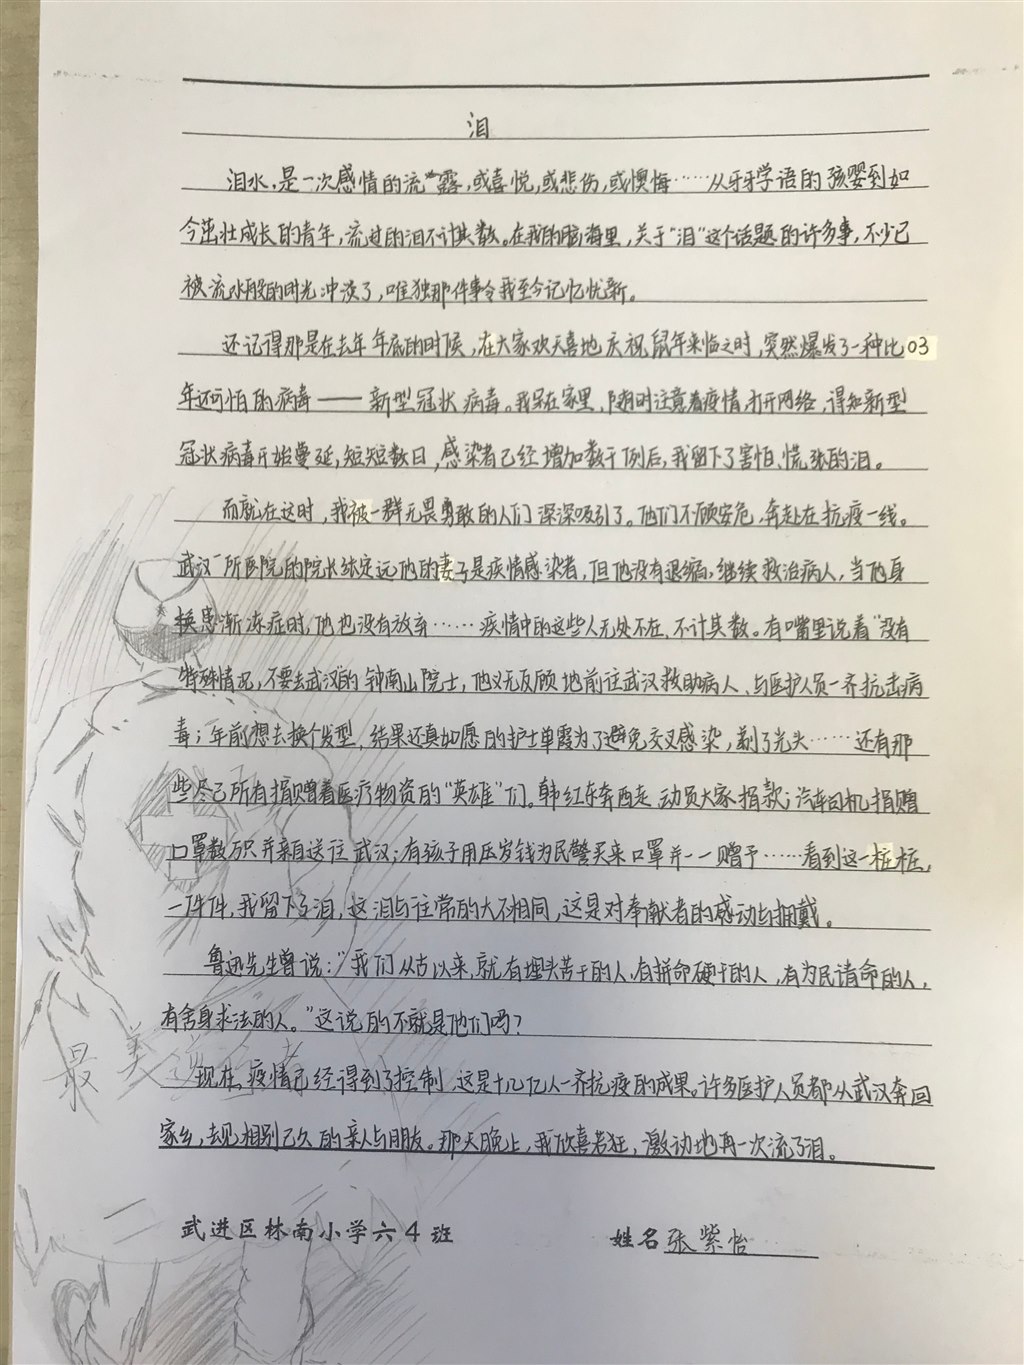 泪
泪水，是一次感情的流露，或喜悦，或悲伤，或懊悔……从牙牙学语的孩婴到如
今茁壮成长的青年，流过的泪不计其数。在我的脑海里，关于“泪”这个话题的许多事，不少已
被流水般的时光冲淡了，唯独那件事令我至今记忆忧新。
还记得那是在去年年底的时候，在大家欢天喜地庆祝鼠年来临之时，突然爆发了一种比03
年还可怕的病毒——新型冠状病毒。我呆在家里，随时注意着疫情，打开网络，得知新型
冠状病毒开始蔓延，短短数日，感染者已经增加数千例后，我留下了害怕、慌张的泪。
而就在这时，我被一群无畏勇敢的人们深深吸引了。他们不顾安危，奔赴在抗疫一线。
武汉一所医院的院长张定远他的妻子是疫情感染者，但他没有退缩，继续救治病人，当他身
换患渐冻症时，他也没有放弃……疫情中的这些人无处不在，不计其数。有嘴里说着“没有
特殊情况，不要去武汉”的钟南山院士，他义无反顾地前往武汉救助病人、与医护人员一齐抗击病
毒；年前想去换个发型，结果还真如愿的护士单霞为了避免交叉感染，剃了光头……还有那
些尽己所有捐赠着医疗物资的“英雄”们。韩红东奔西走，动员大家捐款；汽车司机捐赠
口罩数万只并亲自送往武汉；有孩子用压岁钱为民警买来口罩并一一赠予……看到这一桩桩，
一件件，我留下了泪，这泪与往常的大不相同，这是对奉献者的感动与拥戴。
鲁迅先生曾说：“我们从古以来，就有埋头苦干的人，有拼命硬干的人，有为民请命的人，
有舍身求法的人。”这说的不就是他们吗？
现在，疫情已经得到了控制，这是十几亿人一齐抗疫的成果。许多医护人员都从武汉奔回
家乡，去见相别已久的亲人与朋友。那天晚上，我欣喜若狂，激动地再一次流了泪。
最美
武进区林南小学六4班 姓名张紫怡